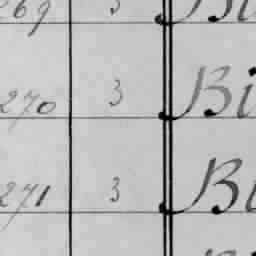 269 3
270 3 Bi
271 3 Bi